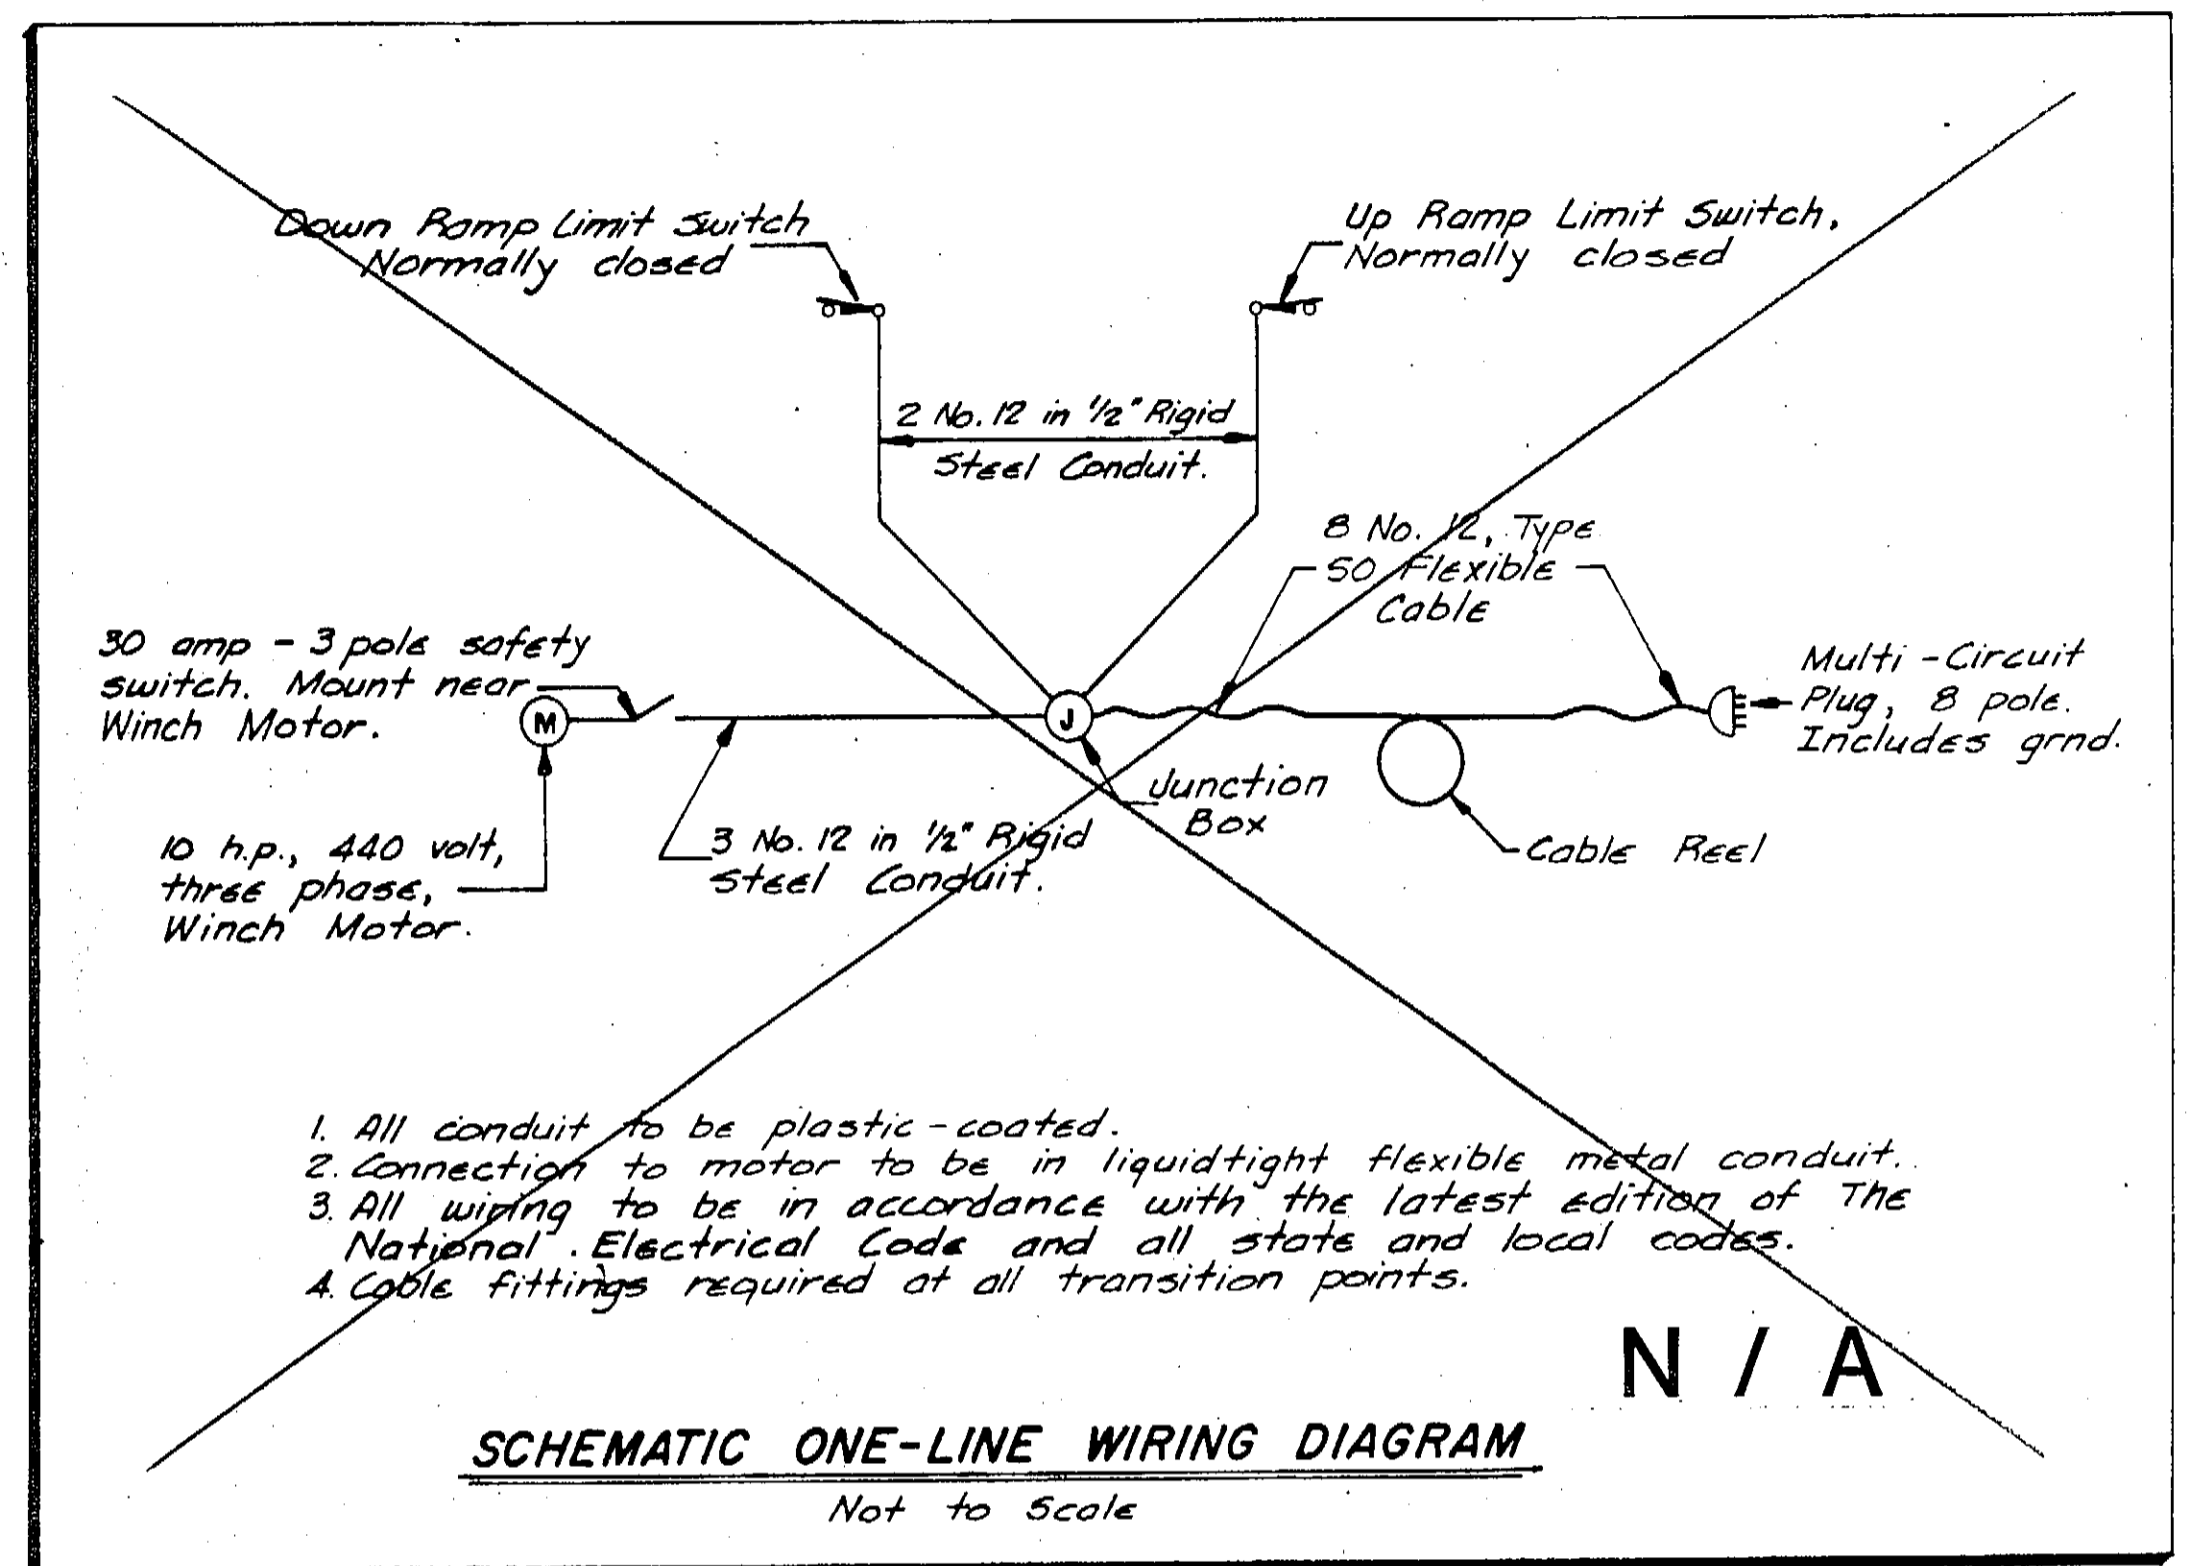 Down Ramp Limit Switch
Normally closed
Up Ramp Limit Switch,
Normally closed
2 No. 12 in 1/2" Rigid
Steel Conduit.
8 No. 12, Type
SO Flexible
Cable
30 amp - 3 pole safety
switch. Mount near
Winch Motor.
M
J
Multi-Circuit
Plug, 8 pole.
Includes grnd.
Junction
Box
Cable Reel
10 h.p., 440 volt,
three phase,
Winch Motor.
3 No. 12 in 1/2" Rigid
Steel Conduit.
1. All conduit to be plastic-coated.
2. Connection to motor to be in liquidtight flexible metal conduit.
3. All wiring to be in accordance with the latest edition of The
National Electrical Code and all state and local codes.
4. Cable fittings required at all transition points.
N / A
SCHEMATIC ONE-LINE WIRING DIAGRAM
Not to Scale